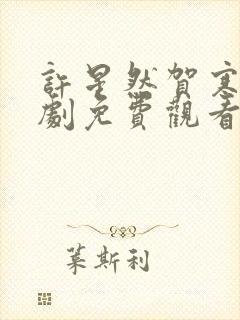 許星然賀寒
劇免費觀看
葉斯利